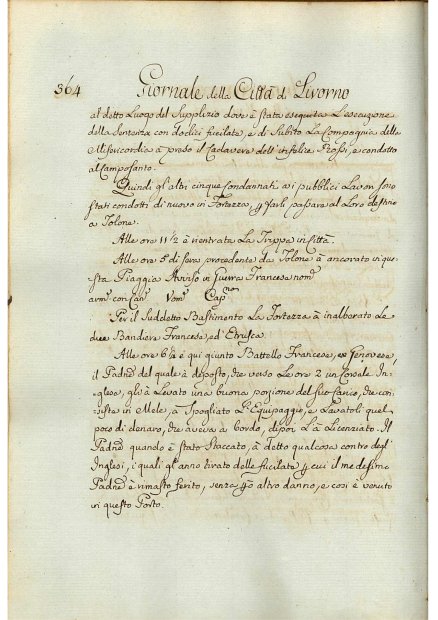 364 Giornale della Città di Livorno
al detto Luogo del Supplizio dove è stata eseguita L'esecuzione
della Sentenza con dodici fucilate, e di Subito La Compagnia della
Misericordia à preso il Cadavere dell'infelice Rossi, e condotto
al Camposanto.
Quindi gl'altri cinque Condannati ai pubblici Lavori sono
stati condotti di nuovo in Fortezza, p farli passare al Loro destino
a Tolone.
Alle ore 11 1/2 à rientrata La Truppa in Città.
Alle ore 5 di sera procedente da Tolone à ancorato in que-
sta Piaggia Avviso in Guerra Francese nom.
arm. con Can. Vom. Cap.
Per il Suddetto Bastimento La Fortezza à inalberato Le
due Bandiere Francese, ed Etrusca.
Alle ore 6 1/4 è qui giunto Battello Francese, ex Genovese
il Padne del quale à deposto, che verso Le ore 2 un Corsale In-
glese, gli à Levato una buona porzione del suo Carico, che con-
sista in Mele, à Spogliato L'Equipaggio, e Levatoli quel
poco di denaro, che aveva a bordo, dipoi L'à Licenziato. Il
Padne quando è stato Staccato, à detto qualcosa contro degl'
Inglesi, i quali gl'anno tirato delle fucilate p cui il medesimo
Padne è rimasto ferito, senza altro danno, e così è venuto
in questo Porto.